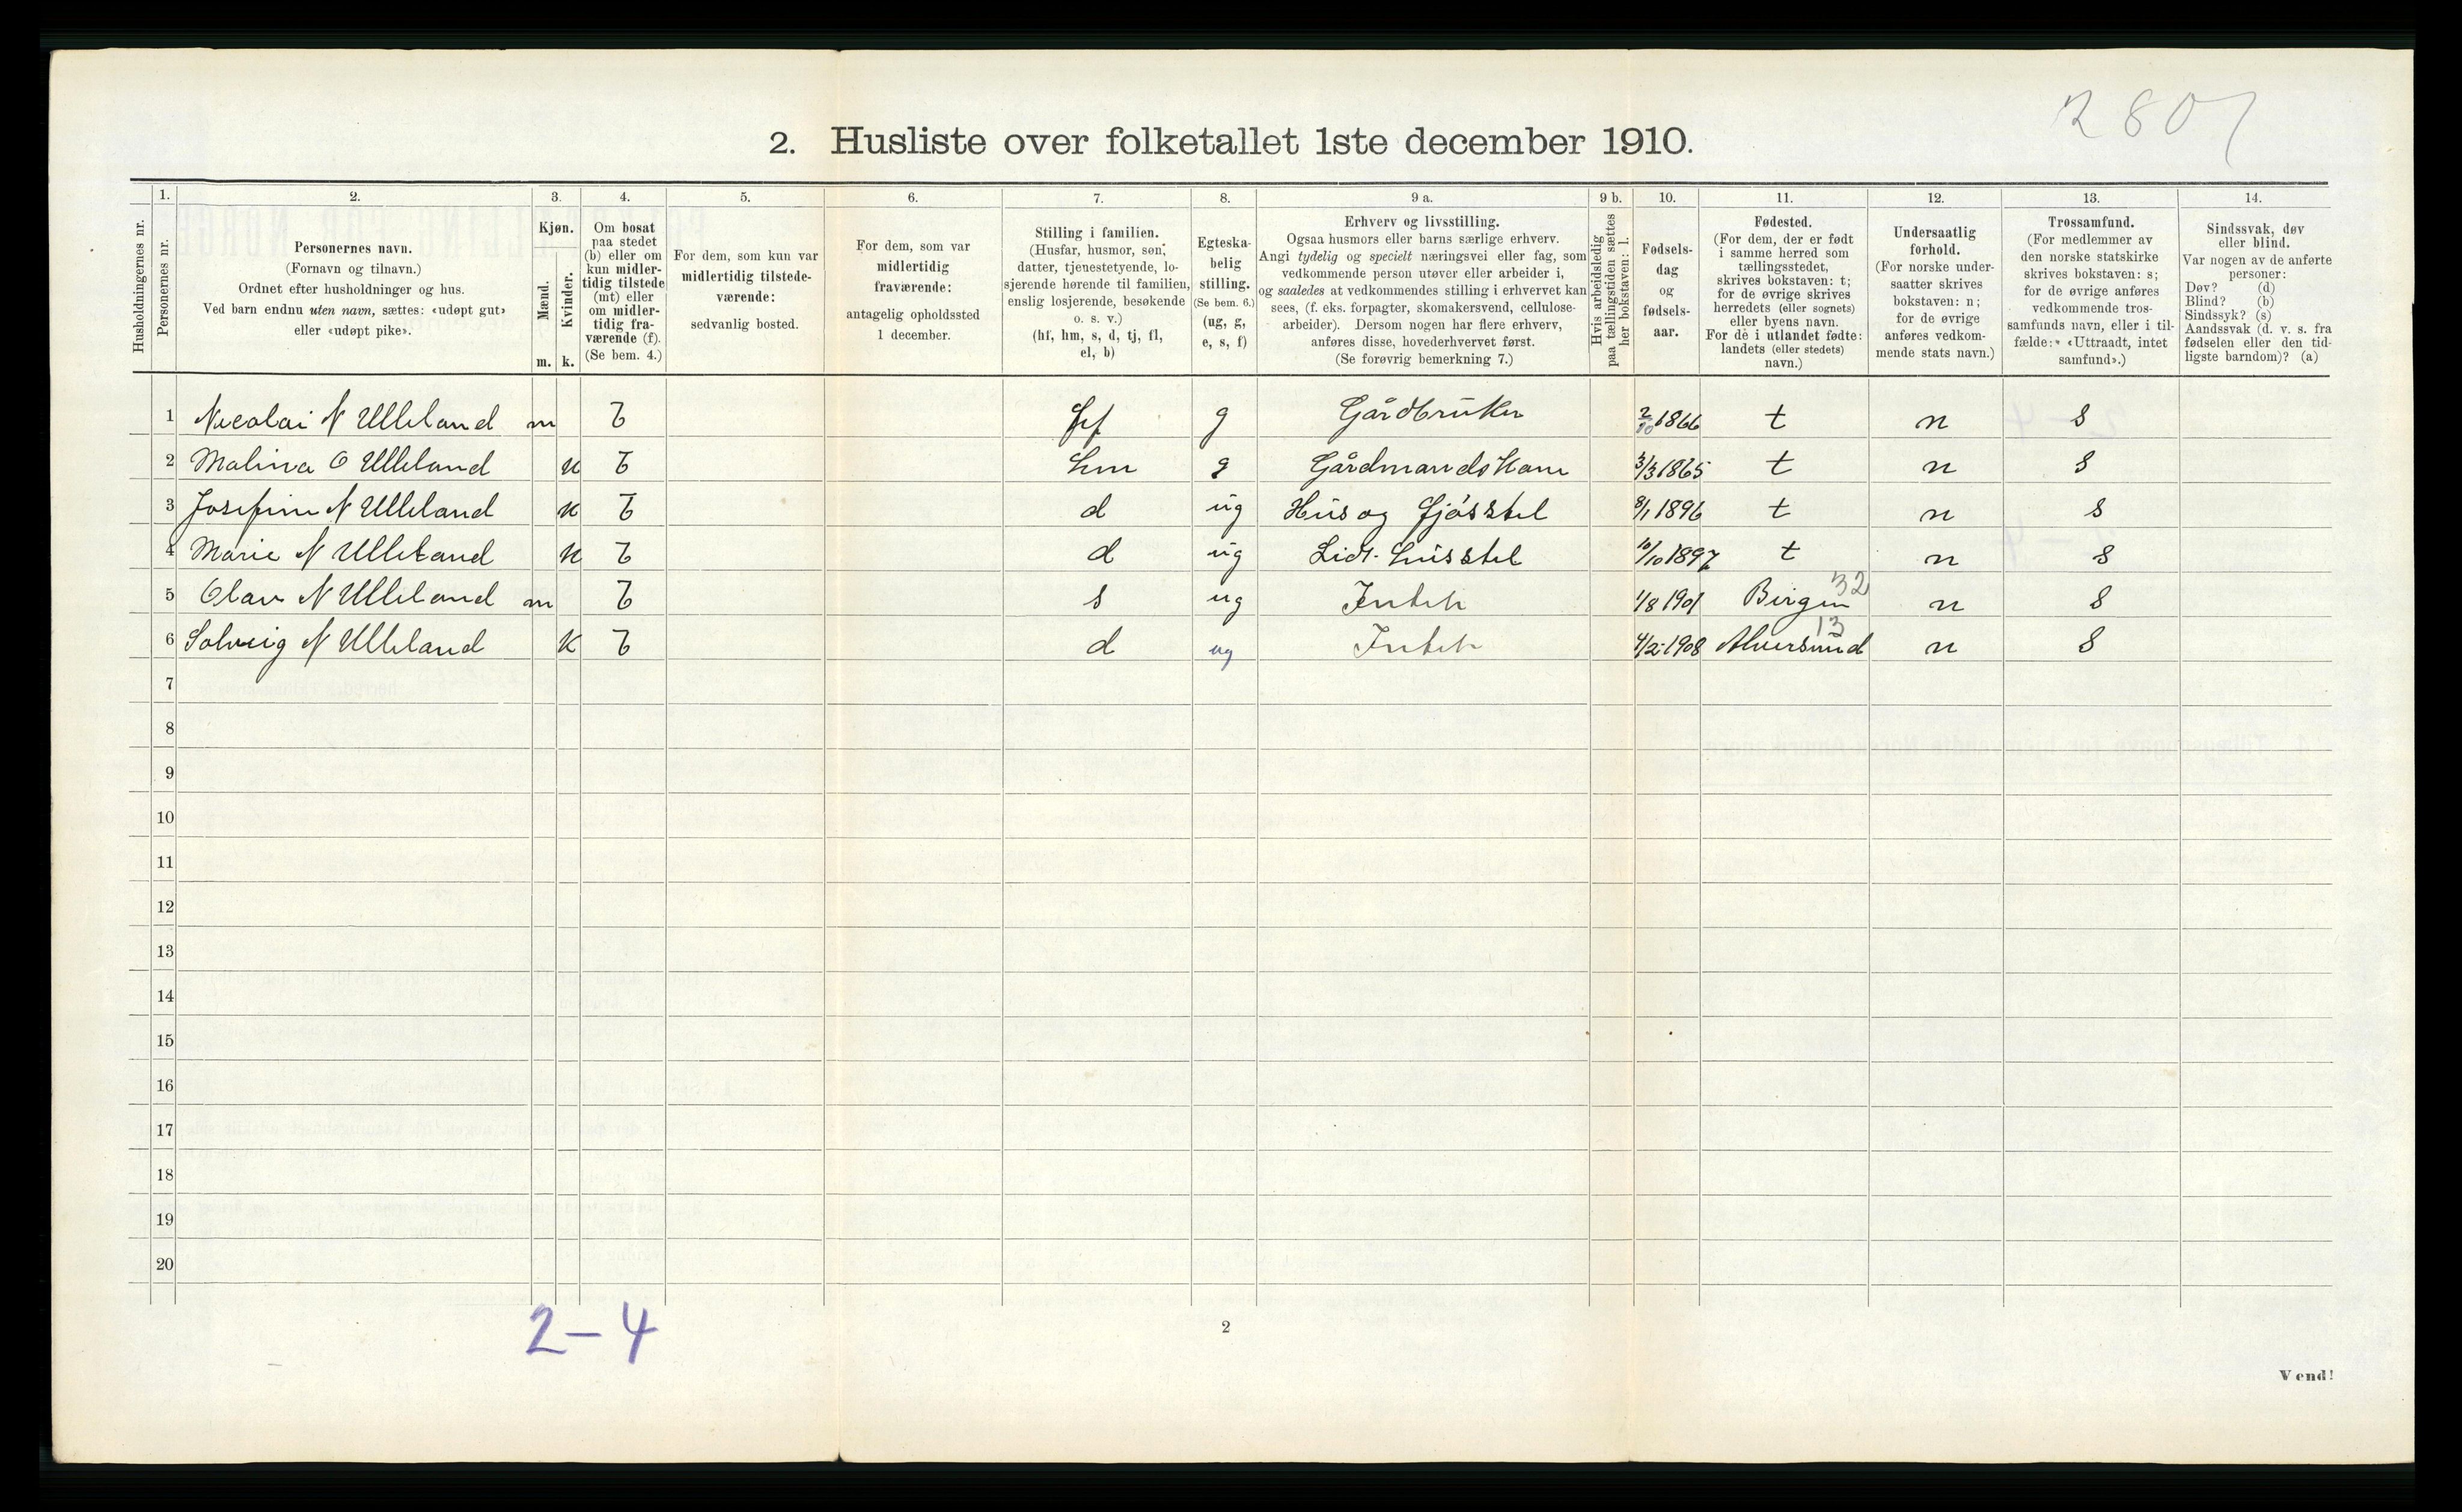 2807
2. Husliste over folketallet 1ste december 1910.
1. 2. 3. 4. 5. 6. 7. 8. 9 a. 9 b. 10. 11. 12. 13. 14.
Husholdningernes nr.
Personernes nr.
Personernes navn.
(Fornavn og tilnavn.)
Ordnet efter husholdninger og hus.
Ved barn endnu uten navn, sættes: «udøpt gut»
eller «udøpt pike».
Kjøn.
Mænd.
Kvinder.
m. k.
Om bosat
paa stedet
(b) eller om
kun midler-
tidig tilstede
(mt) eller
om midler-
tidig fra-
værende (f).
(Se bem. 4.)
For dem, som kun var
midlertidig tilstede-
værende:
sedvanlig bosted.
For dem, som var
midlertidig
fraværende:
antagelig opholdssted
1 december.
Stilling i familien.
(Husfar, husmor, søn,
datter, tjenestetyende, lo-
sjerende hørende til familien,
enslig losjerende, besøkende
o. s. v.)
(hf, hm, s, d, tj, fl,
el, b)
Egteska-
belig
stilling.
(Se bem. 6.)
(ug, g,
e, s, f)
Erhverv og livsstilling.
Ogsaa husmors eller barns særlige erhverv.
Angi tydelig og specielt næringsvei eller fag, som
vedkommende person utøver eller arbeider i,
og saaledes at vedkommendes stilling i erhvervet kan
sees, (f. eks. forpagter, skomakersvend, cellulose-
arbeider). Dersom nogen har flere erhverv,
anføres disse, hovederhvervet først.
(Se forøvrig bemerkning 7.)
Hvis arbeidsledig
paa tællingstiden sættes
her bokstaven: l.
Fødsels-
dag
og
fødsels-
aar.
Fødested.
(For dem, der er født
i samme herred som
tællingsstedet,
skrives bokstaven: t;
for de øvrige skrives
herredets (eller sognets)
eller byens navn.
For de i utlandet fødte:
landets (eller stedets)
navn.)
Undersaatlig
forhold.
(For norske under-
saatter skrives
bokstaven: n;
for de øvrige
anføres vedkom-
mende stats navn.)
Trossamfund.
(For medlemmer av
den norske statskirke
skrives bokstaven: s;
for de øvrige anføres
vedkommende tros-
samfunds navn, eller i til-
fælde: «Uttraadt, intet
samfund».)
Sindssvak, døv
eller blind.
Var nogen av de anførte
personer:
Døv? (d)
Blind? (b)
Sindssyk? (s)
Aandssvak (d. v. s. fra
fødselen eller den tid-
ligste barndom)? (a)
1 Necolai N Ulleland m b hf g Gårdbruker 2/10 1866 t n s
2 Malina O Ulleland k b hm g Gårdmandskone 3/3 1865 t n s
3 Josefine N Ulleland k b d ug Hus og fjøsstel 8/1 1896 t n s
4 Marie N Ulleland k b d ug Lidt husstel 10/10 1897 t n s
5 Olav N Ulleland m b s ug Intet 1/8 1901 Bergen 32 n s
6 Solveig N Ulleland k b d ug Intet 4/2 1908 Alversund 13 n s
7
8
9
10
11
12
13
14
15
16
17
18
19
20
2–4
2
Vend!